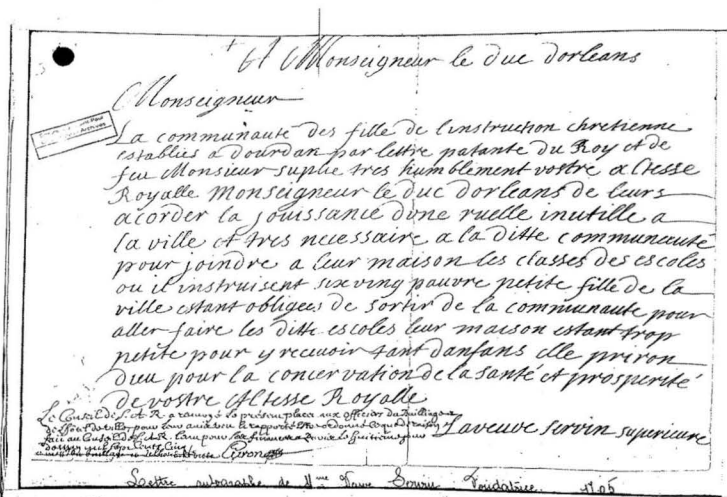 A Monseigneur le duc dorleans
Monseigneur
La communauté des fille de linstruction chretienne
establies a dourdan par lettre patante du Roy et de
feu Monsieur suplie tres humblement vostre altesse
Royalle Monseigneur le duc dorleans de leurs
acorder la jouissance dune ruelle inutille a
la ville et tres necessaire a la ditte communauté
pour joindre a leur maison les classes des escoles
ou il instruisent six ving pauvre petite fille de la
ville estant obligees de sortir de la communaute pour
aller faire les ditte escoles leur maison estant trop
petite pour y recevoir tant danfans elle priron
dieu pour la concervation de la santé et prosperité
de vostre Altesse Royalle
Le Conseil de S.A.R. a renvoyé le présent placet aux officiers du bailliage
laveuve servin superieure
Lettre autographe de Mme Veuve Fondatrice